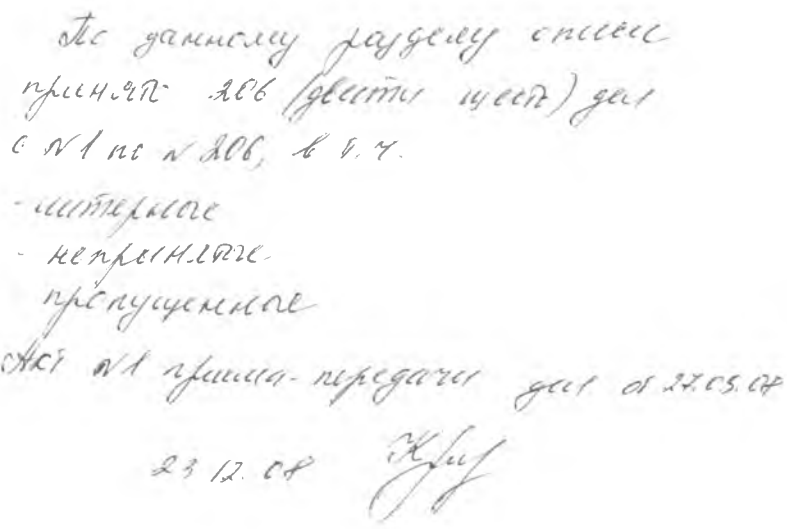 По данному разделу описи
принято 206 (двести шесть) дел
с №1 по №206, в т.ч.
- литерные
- непринятые
пропущенные
Акт №1 приема-передачи дел от
23.12.08